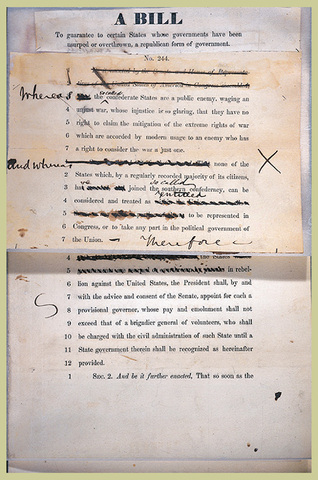 A BILL
To guarantee to certain States whose governments have been
usurped or overthrown, a republican form of government.
No. 244.
Whereas
so called
3 the confederate States are a public enemy, waging an
4 unjust war, whose injustice is so glaring, that they have no
5 right to claim the mitigation of the extreme rights of war
6 which are accorded by modern usage to an enemy who has
7 a right to consider the war a just one.
and whereas none of the
2 States which, by a regularly recorded majority of its citizens,
so called
3 has joined the southern confederacy, can be
entitled
4 considered and treated as
5 to be represented in
6 Congress, or to take any part in the political government of
7 the Union. Therefore
4
5 in rebel-
6 lion against the United States, the President shall, by and
7 with the advice and consent of the Senate, appoint for each a
8 provisional governor, whose pay and emolument shall not
9 exceed that of a brigadier general of volunteers, who shall
10 be charged with the civil administration of such State until a
11 State government therein shall be recognized as hereinafter
12 provided.
1 Sec. 2. And be it further enacted, That so soon as the